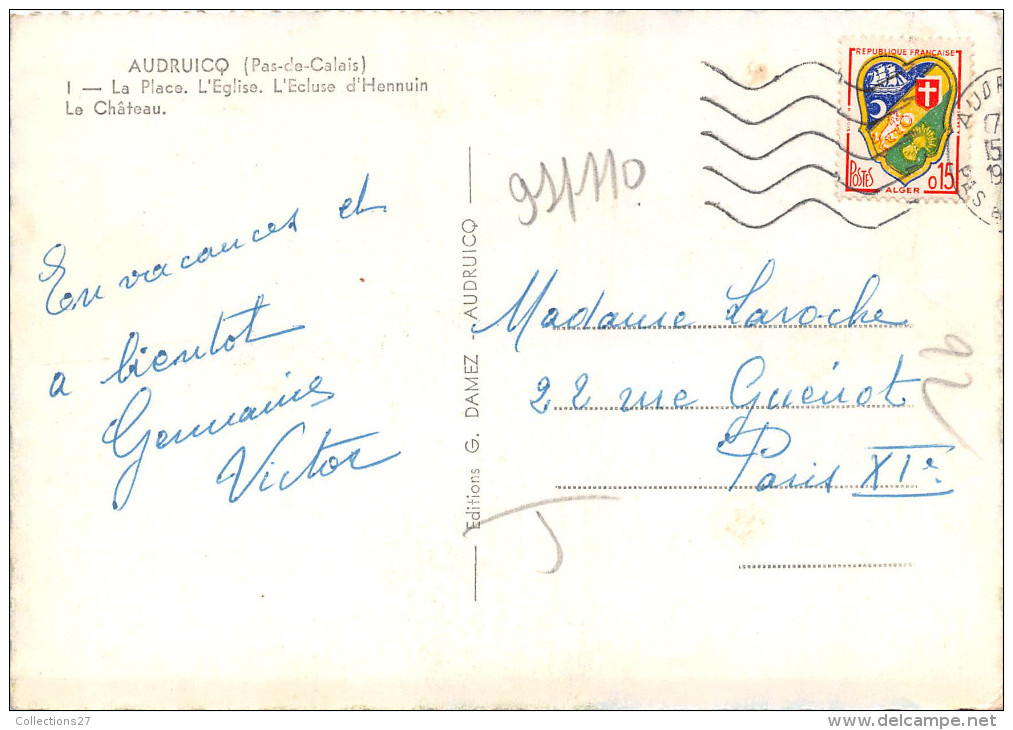 AUDRUICQ (Pas-de-Calais)
I — La Place. L'Eglise. L'Ecluse d'Hennuin
Le Château.
En vacances et
a bientot
Germaine
Victor
Editions G. DAMEZ - AUDRUICQ
93/110
REPUBLIQUE FRANCAISE
POSTES
0.15
ALGER
AUDR
17
15
19
PAS
Madame Laroche
22 rue Guénot
Paris XIe
Collections27
delcampe.net